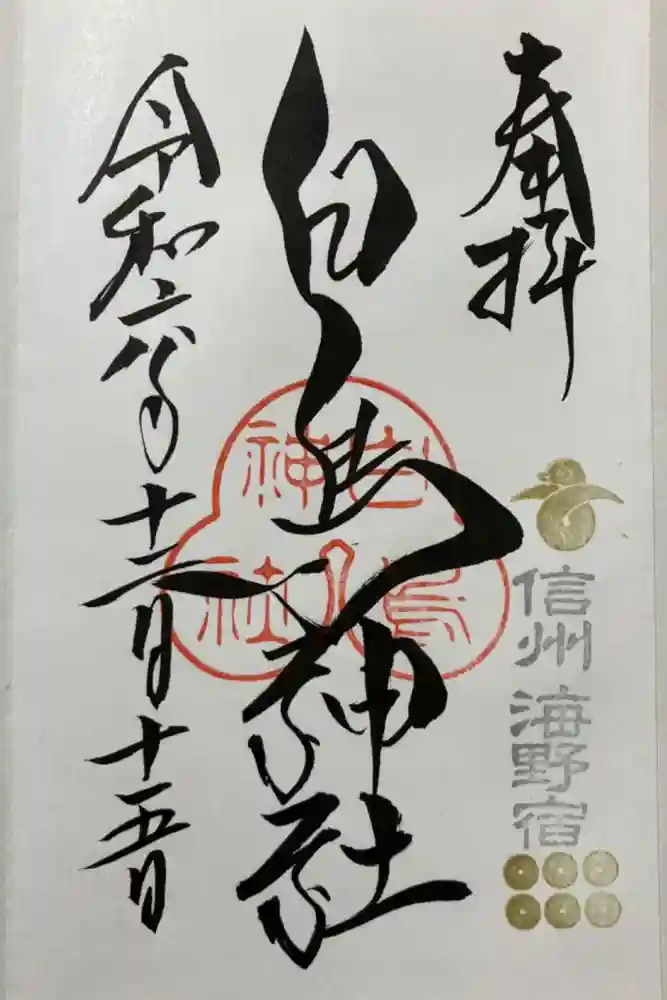 奉拝
信州 海野宿
白鳥神社
白鳥
神社
令和六年十二月十五日